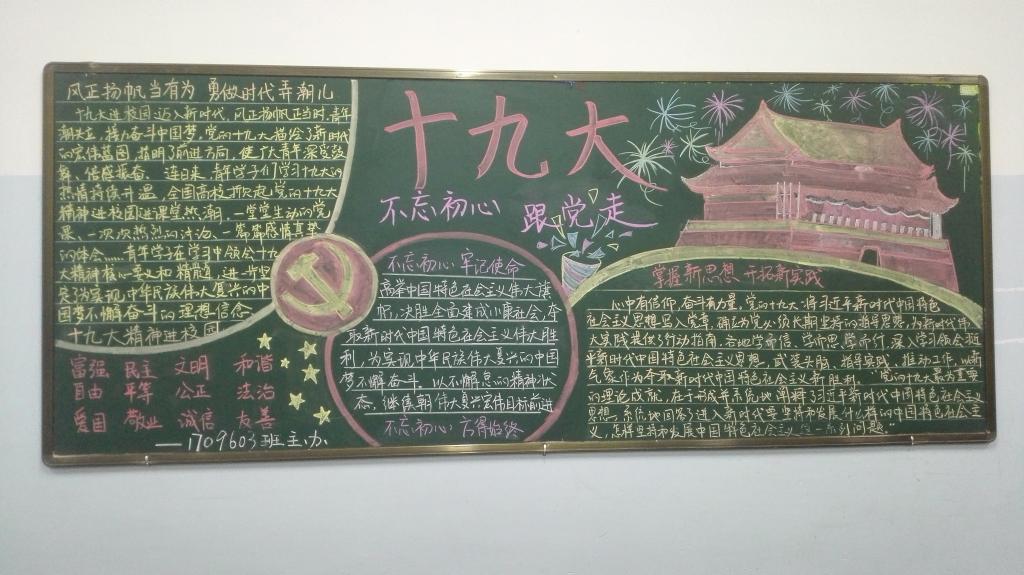 风正扬帆当有为 勇做时代弄潮儿
十九大进校园迈入新时代,风正扬帆正当时,青年
潮头立,接力奋斗中国梦。党的十九大描绘了新时代
的宏伟蓝图,指明了前进方向,使广大青年深受鼓
舞、倍感振奋。连日来,青年学子们学习十九大的
热情持续升温,全国高校掀起党的十九大
精神进校园进课堂热潮,一堂堂生动的党
课、一次次热烈的讨论、一篇篇感情真挚
的体会……青年学子在学习中领会十九
大精神核心要义和精髓,进一步坚
定为实现中华民族伟大复兴的中
国梦不懈奋斗的理想信念
十九大精神进校园
富强 民主 文明 和谐
自由 平等 公正 法治
爱国 敬业 诚信 友善
——1709603班主办
十九大
不忘初心 跟党走
不忘初心 牢记使命
高举中国特色社会主义伟大旗
帜,决胜全面建成小康社会,夺
取新时代中国特色社会主义伟大胜
利,为实现中华民族伟大复兴的中国
梦不懈奋斗。以不懈怠的精神状
态,继续朝伟大复兴宏伟目标前进
不忘初心 方得始终
掌握新思想 开拓新实践
心中有信仰,奋斗有力量,党的十九大,将习近平新时代中国特色
社会主义思想写入党章,确立为党必须长期坚持的指导思想,为新时代伟
大实践提供了行动指南。各地学而信、学而思、学而行,深入学习领会习
近平新时代中国特色社会主义思想,武装头脑、指导实践、推动工作,以新
气象作为夺取新时代中国特色社会主义新胜利。"党的十九大最为重要
的理论成就,在于形成并系统地阐释了习近平新时代中国特色社会主义
思想,系统地回答了进入新时代要坚持和发展什么样的中国特色社会主
义,怎样坚持和发展中国特色社会主义这一系列问题"